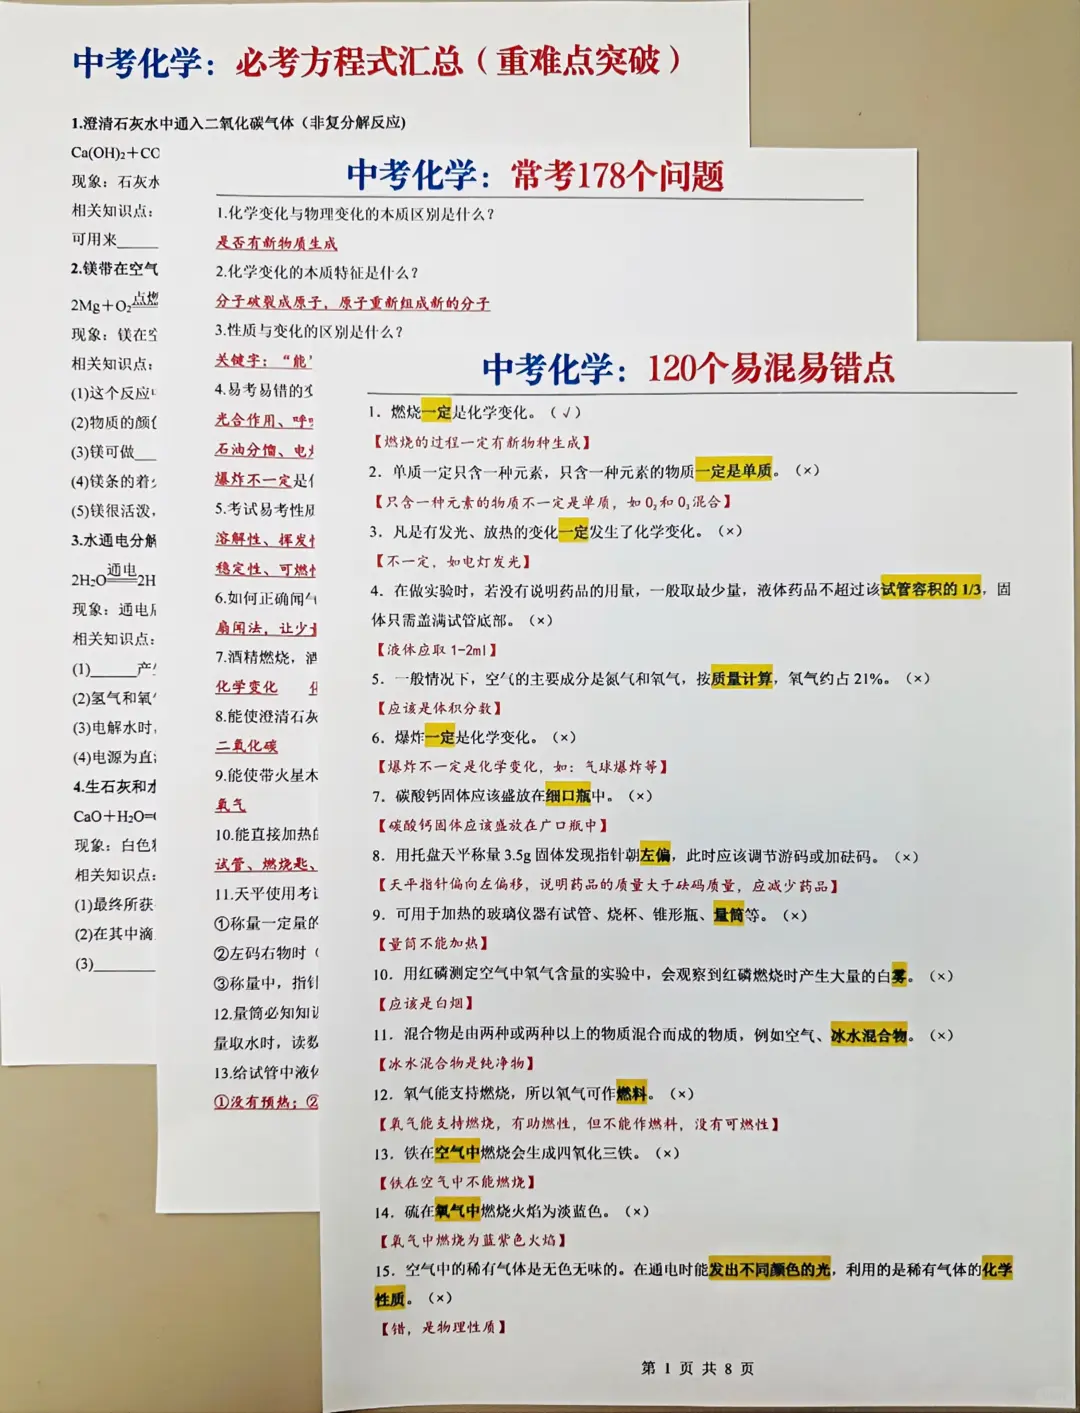 中考化学：必考方程式汇总（重难点突破）
1.澄清石灰水中通入二氧化碳气体（非复分解反应)
Ca(OH)₂＋CO
现象：石灰水
相关知识点：
可用来______
2.镁带在空气
2Mg＋O₂点燃
现象：镁在空
相关知识点：
(1)这个反应中
(2)物质的颜色
(3)镁可做___
(4)镁条的着火
(5)镁很活泼，
3.水通电分解
2H₂O通电2H
现象：通电后
相关知识点：
(1)______产生
(2)氢气和氧气
(3)电解水时，
(4)电源为直流
4.生石灰和水
CaO＋H₂O=
现象：白色粉
相关知识点：
(1)最终所获
(2)在其中滴
(3)________
中考化学：常考178个问题
1.化学变化与物理变化的本质区别是什么？
是否有新物质生成
2.化学变化的本质特征是什么？
分子破裂成原子，原子重新组成新的分子
3.性质与变化的区别是什么？
关键字：“能”
4.易考易错的变
光合作用、呼吸
石油分馏、电灯
爆炸不一定是化
5.考试易考性质
溶解性、挥发性
稳定性、可燃性
6.如何正确闻气
扇闻法，让少量
7.酒精燃烧，酒
化学变化 化
8.能使澄清石灰
二氧化碳
9.能使带火星木
氧气
10.能直接加热的
试管、燃烧匙、
11.天平使用考试
①称量一定量的
②左码右物时（
③称量中，指针
12.量筒必知知识
量取水时，读数
13.给试管中液体
①没有预热；②
中考化学：120个易混易错点
1．燃烧一定是化学变化。（√）
【燃烧的过程一定有新物种生成】
2．单质一定只含一种元素，只含一种元素的物质一定是单质。（×）
【只含一种元素的物质不一定是单质，如 O₂和 O₃混合】
3．凡是有发光、放热的变化一定发生了化学变化。（×）
【不一定，如电灯发光】
4．在做实验时，若没有说明药品的用量，一般取最少量，液体药品不超过该试管容积的 1/3，固
体只需盖满试管底部。（×）
【液体应取 1-2ml】
5．一般情况下，空气的主要成分是氮气和氧气，按质量计算，氧气约占 21%。（×）
【应该是体积分数】
6．爆炸一定是化学变化。（×）
【爆炸不一定是化学变化，如：气球爆炸等】
7．碳酸钙固体应该盛放在细口瓶中。（×）
【碳酸钙固体应该盛放在广口瓶中】
8．用托盘天平称量 3.5g 固体发现指针朝左偏，此时应该调节游码或加砝码。（×）
【天平指针偏向左偏移，说明药品的质量大于砝码质量，应减少药品】
9．可用于加热的玻璃仪器有试管、烧杯、锥形瓶、量筒等。（×）
【量筒不能加热】
10．用红磷测定空气中氧气含量的实验中，会观察到红磷燃烧时产生大量的白雾。（×）
【应该是白烟】
11．混合物是由两种或两种以上的物质混合而成的物质，例如空气、冰水混合物。（×）
【冰水混合物是纯净物】
12．氧气能支持燃烧，所以氧气可作燃料。（×）
【氧气能支持燃烧，有助燃性，但不能作燃料，没有可燃性】
13．铁在空气中燃烧会生成四氧化三铁。（×）
【铁在空气中不能燃烧】
14．硫在氧气中燃烧火焰为淡蓝色。（×）
【氧气中燃烧为蓝紫色火焰】
15．空气中的稀有气体是无色无味的。在通电时能发出不同颜色的光，利用的是稀有气体的化学
性质。（×）
【错，是物理性质】
第 1 页 共 8 页